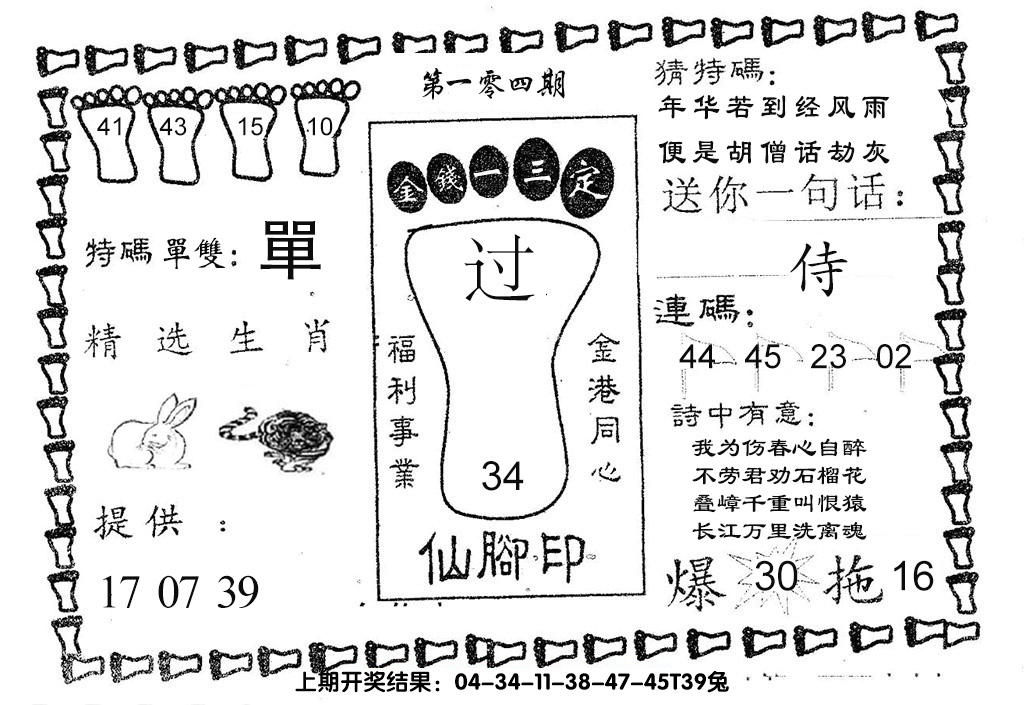 第一零四期
41 43 15 10
特碼單雙：單
精选生肖
提供：
17 07 39
金錢一三定
过
福利事業
金港同心
34
仙腳印
猜特碼：
年华若到经风雨
便是胡僧话劫灰
送你一句话：
侍
連碼：
44 45 23 02
詩中有意：
我为伤春心自醉
不劳君劝石榴花
叠嶂千重叫恨猿
长江万里洗离魂
爆 30 拖 16
上期开奖结果：04-34-11-38-47-45T39兔